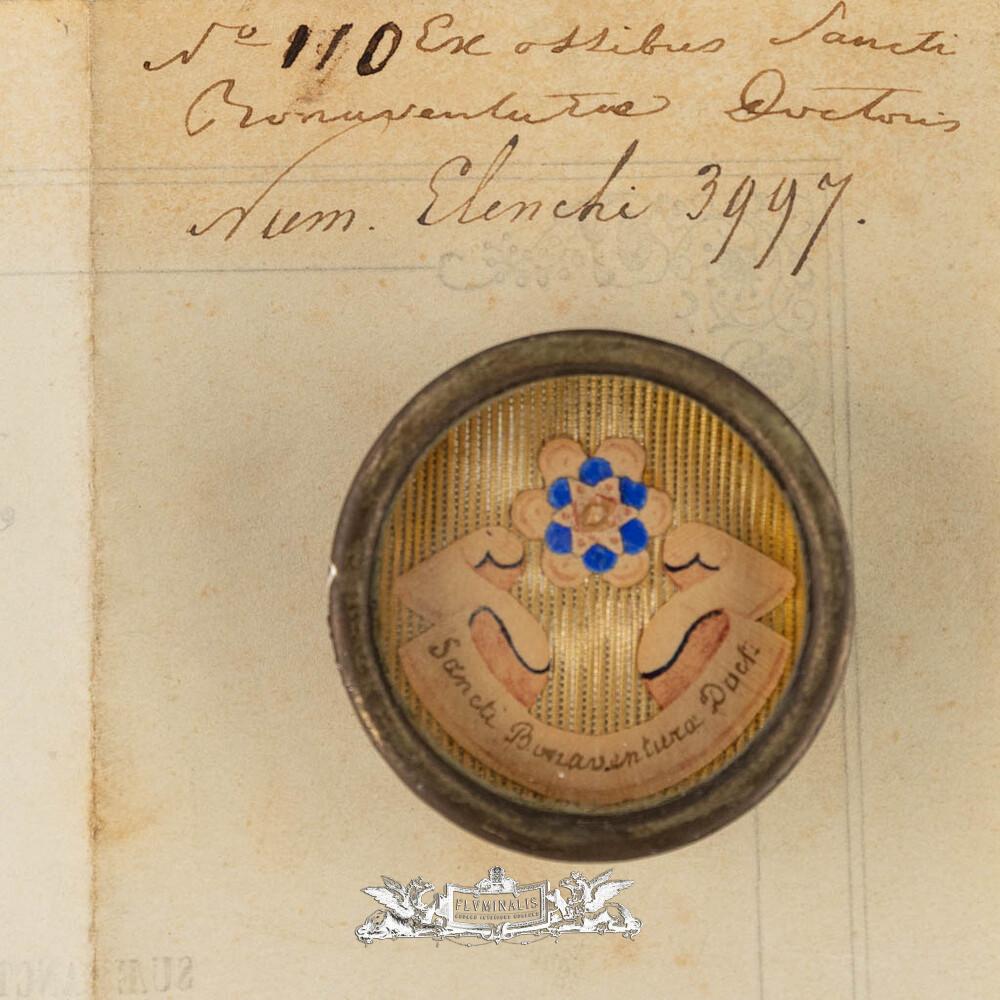 No 110 Ex ossibus Sancti
Bonaventurae Doctoris
Num. Elenchi 3997.
Sancti Bonaventuræ Doct:
FLVMINALIS